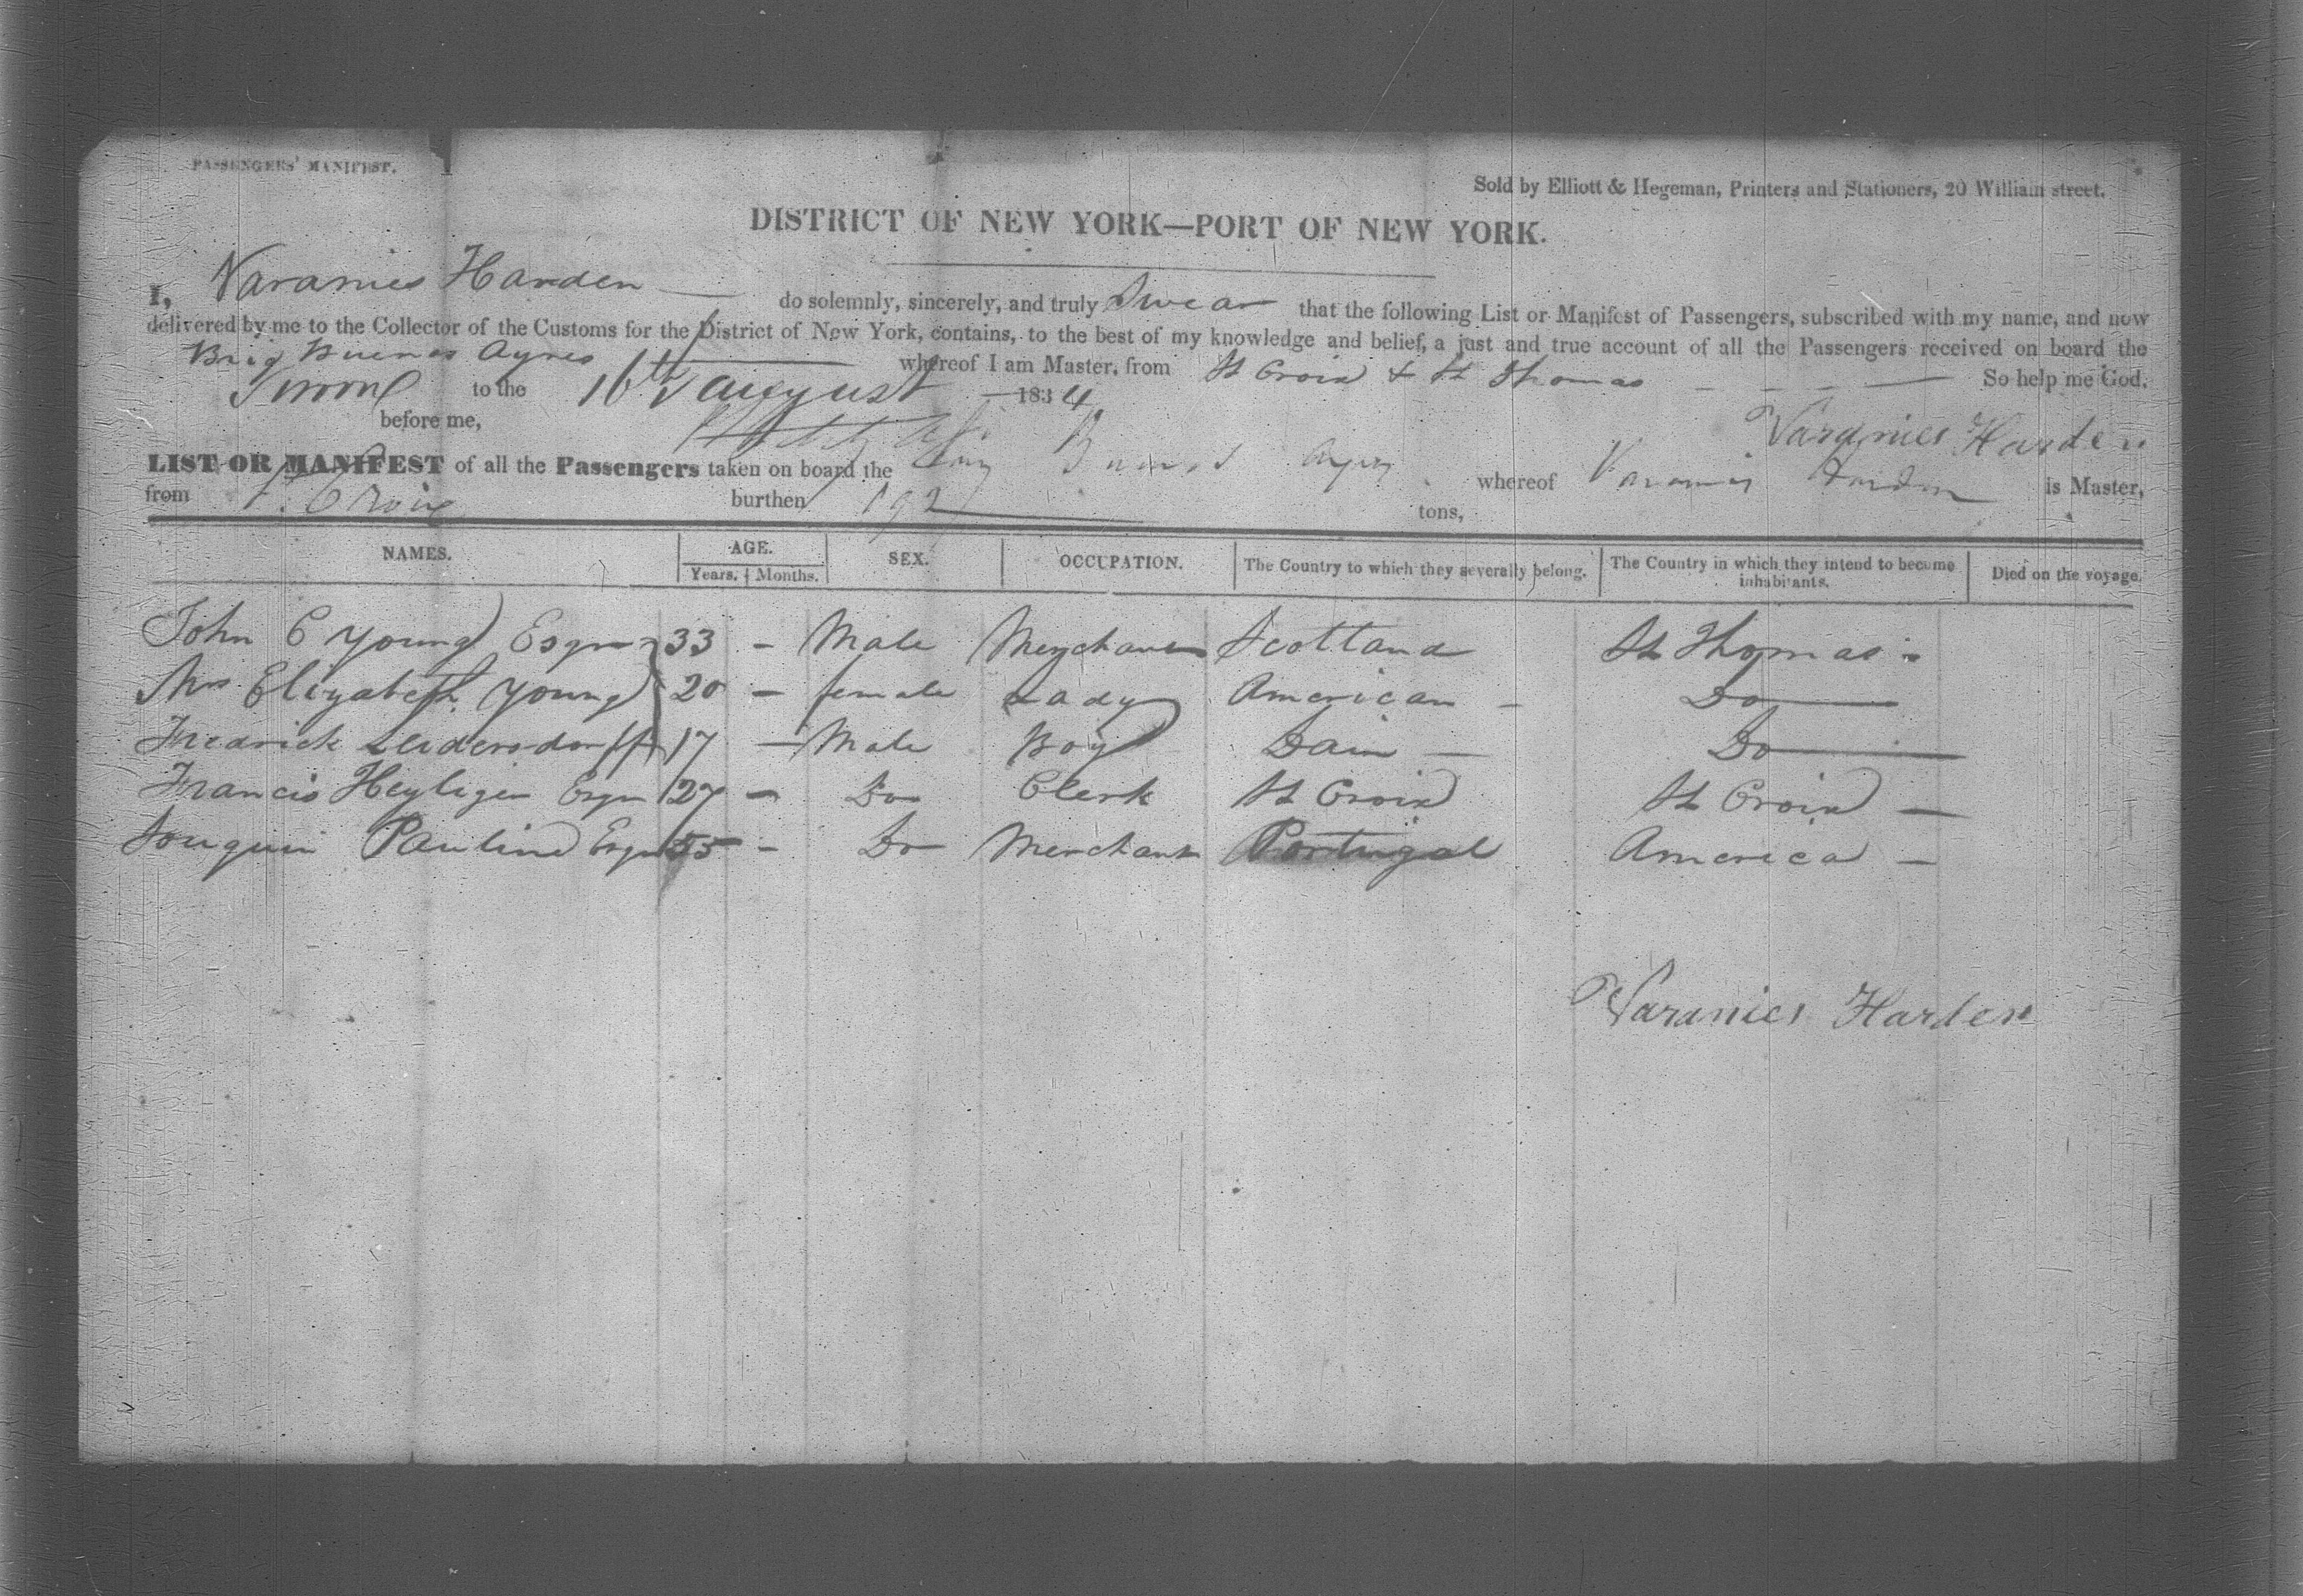 PASSENGERS' MANIFEST.
Sold by Elliott & Hegeman, Printers and Stationers, 20 William street.
DISTRICT OF NEW YORK—PORT OF NEW YORK.
I, Varanies Harden do solemnly, sincerely, and truly Swear that the following List or Manifest of Passengers, subscribed with my name, and now
delivered by me to the Collector of the Customs for the District of New York, contains, to the best of my knowledge and belief, a just and true account of all the Passengers received on board the
Brig Buenos Ayres whereof I am Master, from St Croix & St Thomas So help me God.
to the 16th august 1834
before me,
Varanies Harden
LIST OR MANIFEST of all the Passengers taken on board the Brig Buenos Ayres whereof Varanies Harden is Master,
from St Croix burthen 192 tons,
NAMES. AGE. SEX. OCCUPATION. The Country to which they severally belong. The Country in which they intend to become inhabitants. Died on the voyage.
Years. Months.
John C Young Esqr 33 - Male Merchant Scotland St Thomas -
Mrs Elizabeth Young 20 - female Lady American - Do
Fredrick Leidersdorff 17 - Male Boy Dain - Do
Francis Heyliger Esqr 27 - Do Clerk St Croix St Croix -
Pauline Esqr 55 - Do Merchant Portugal America -
Varanies Harden